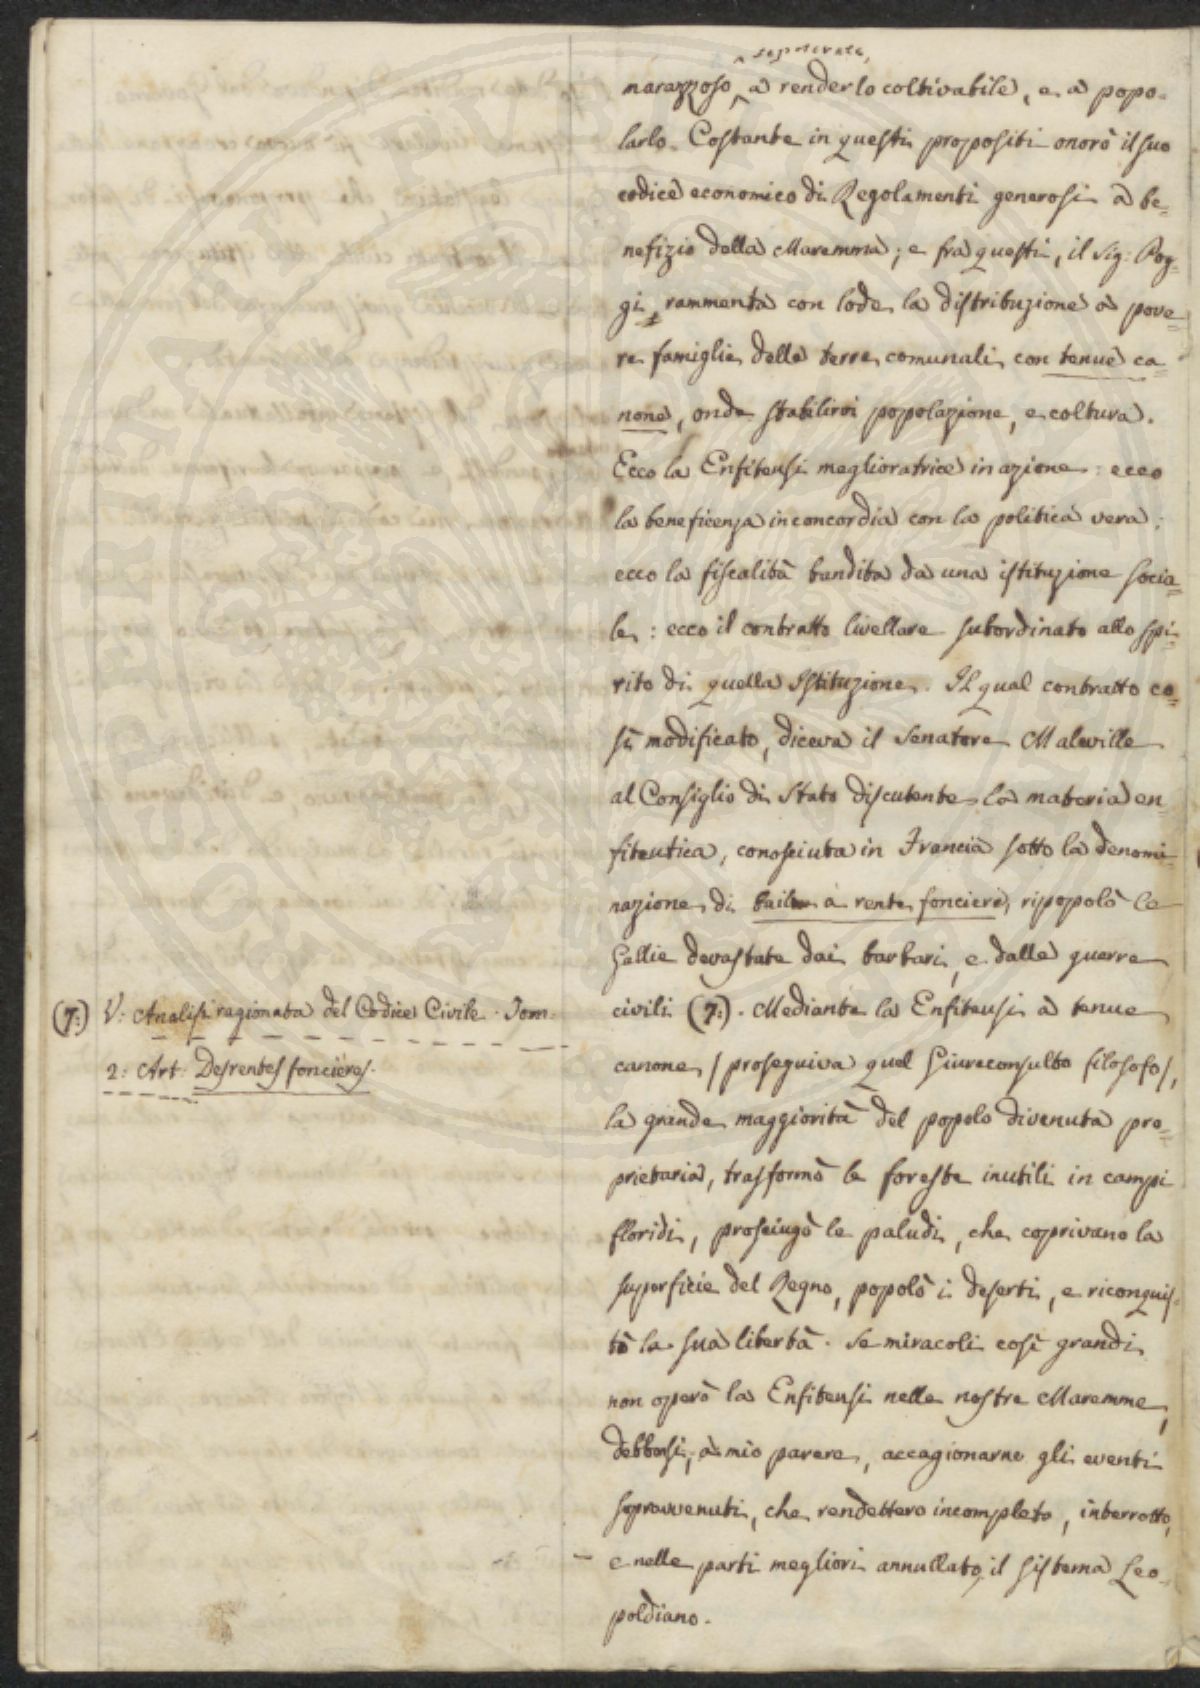 narazzoso, a renderlo coltivabile, e a popo=
larlo. Costante in questi propositi onorò il suo
codice economico di Regolamenti generosi a be=
nefizio della Maremma; e fra questi, il Sig: Pog=
gi, rammenta con lode la distribuzione a pove=
re famiglie delle terre comunali con tenue ca=
none, onde stabilirvi popolazione, e coltura.
Ecco la Enfiteusi meglioratrice in azione: ecco
la beneficenza in concordia con la politica vera:
ecco la fiscalità bandita da una istituzione socia=
le: ecco il contratto livellare subordinato allo spi=
rito di quella Istituzione. Il qual contratto co=
sì modificato, diceva il Senatore Maleville
al Consiglio di Stato discutente la materia en=
fiteutica, conosciuta in Francia sotto la denomi=
nazione di bail a rente fonciere, ripopolò le
Gallie devastate dai barbari, e dalle guerre
civili (7:). Mediante la Enfiteusi a tenue
canone / proseguiva quel Giureconsulto filosofo /,
la grande maggiorità del popolo divenuta pro=
prietaria, trasformò le foreste inutili in campi
floridi, prosciugò le paludi, che coprivano la
superficie del Regno, popolò i deserti, e riconquis=
tò la sua libertà. Se miracoli così grandi
non operò la Enfiteusi nelle nostre Maremme,
debbesi, a mio parere, accagionarne gli eventi
sopravvenuti, che rendettero incompleto, interrotto,
e nelle parti megliori annullato, il sistema Leo=
poldiano.
(7:) V: Analisi ragionata del Codice Civile. Tom:
2: Art: Des rentes foncières.